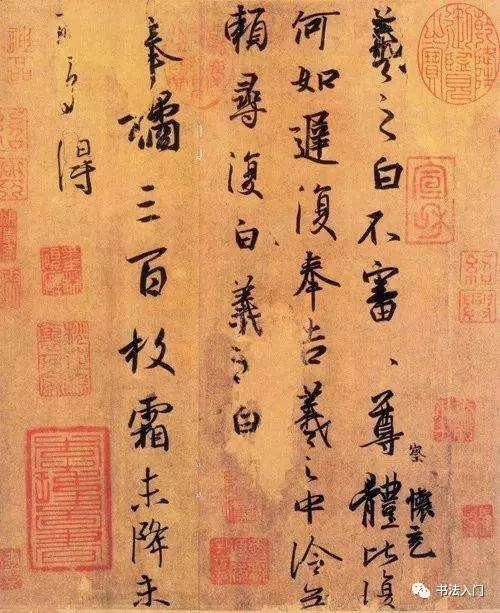 羲之白不審尊體比復
察
懷充
何如遲復奉告羲之中冷無
賴尋復白羲之白
奉橘三百枚霜未降未
可多得
书法入门